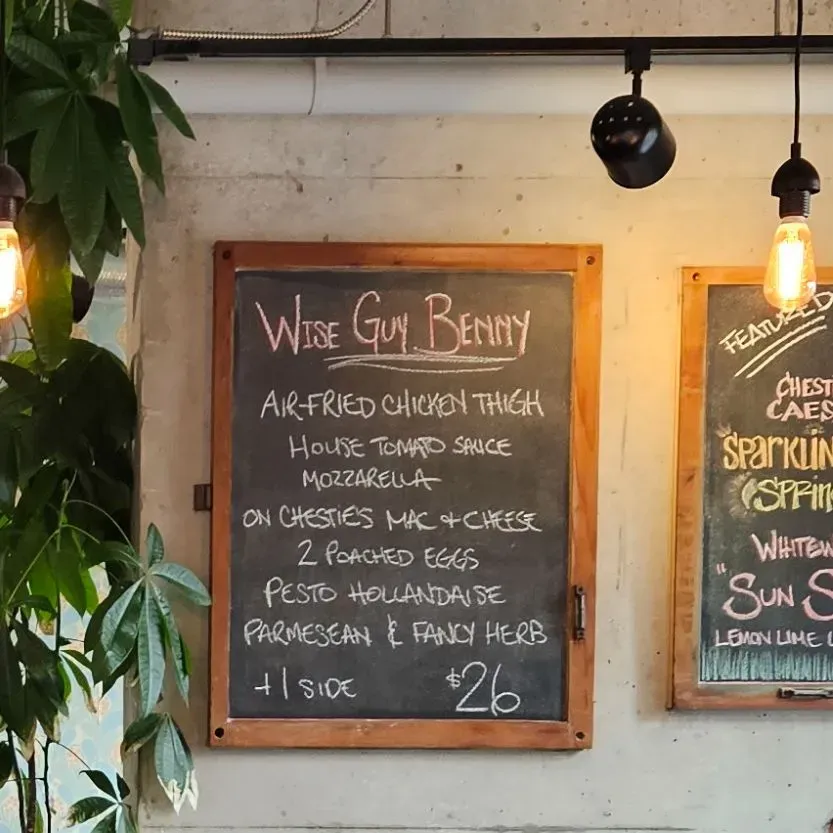 WISE GUY BENNY
AIR-FRIED CHICKEN THIGH
HOUSE TOMATO SAUCE
MOZZARELLA
ON CHESTIE'S MAC + CHEESE
2 POACHED EGGS
PESTO HOLLANDAISE
PARMESEAN & FANCY HERB
+1 SIDE $26
FEATURED
SUN
LEMON LIME